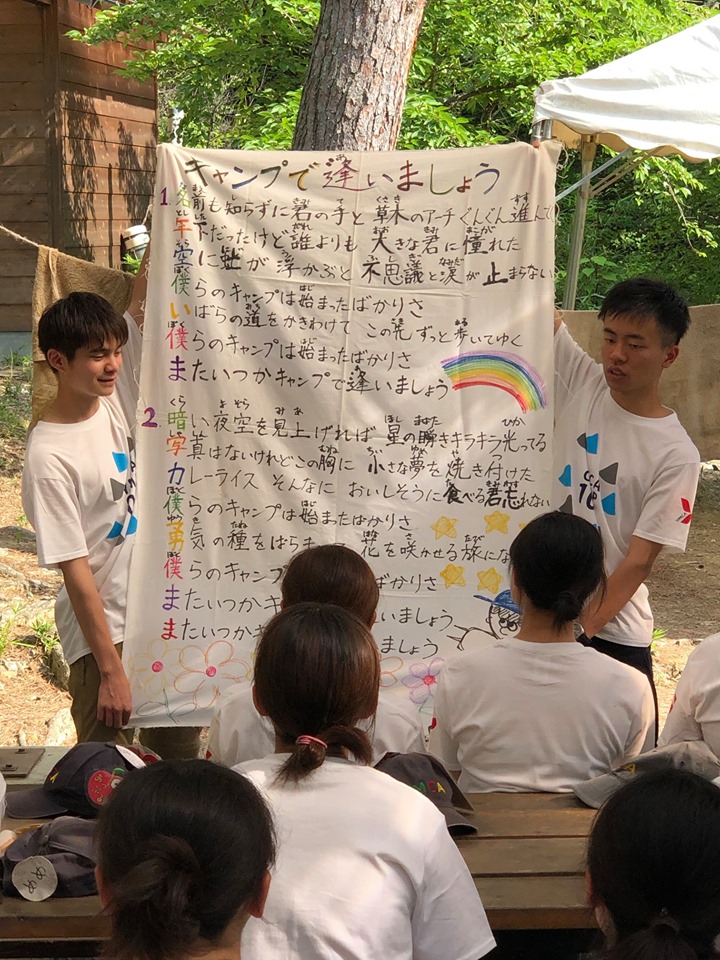 キャンプで逢いましょう
1. 名前も知らずに君の手と 草木のアーチぐんぐん進んで
年下だったけど誰よりも 大きな君に憧れた
空に虹が浮かぶと 不思議と涙が止まらない
僕らのキャンプは始まったばかりさ
いばらの道をかきわけて この先ずっと歩いてゆく
僕らのキャンプは始まったばかりさ
またいつかキャンプで逢いましょう
2 暗い夜空を見上げれば 星の瞬きキラキラ光ってる
写真はないけれどこの胸に 小さな夢を焼き付けた
カレーライス そんなに おいしそうに食べる君忘れない
僕らのキャンプは始まったばかりさ
勇気の種をばらま 花を咲かせる旅にな
僕らのキャンプ ばかりさ
またいつかキ いましょう
またいつかキ ましょう